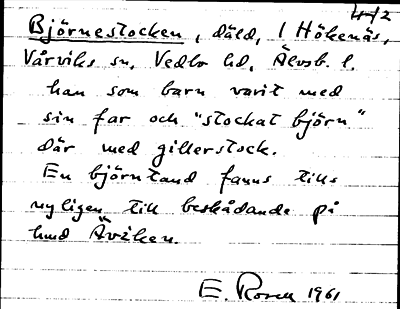 4/12
Björnestocken, däld, i Hökenäs,
Vårviks sn, Vedbo hd, Älvsb. l.
han som barn varit med
sin far och "stockat björn"
där med gillerstock.
En björntand fanns tills
nyligen till beskådande på
hmd Äviken.
E. Rosen 1961